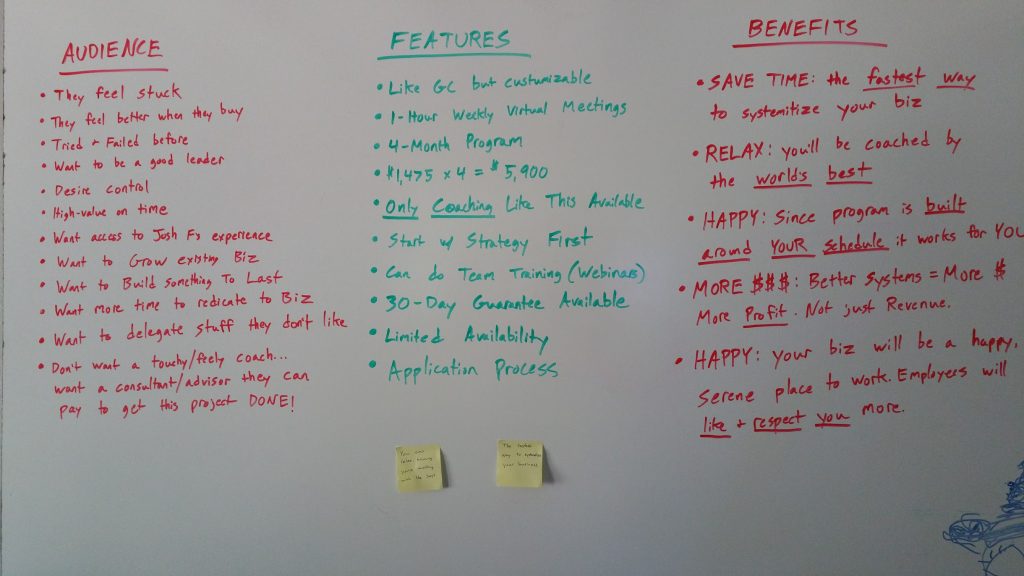 AUDIENCE
• They feel stuck
• They feel better when they buy
• Tried + Failed before
• Want to be a good leader
• Desire control
• High-value on time
• Want access to Josh F's experience
• Want to Grow existing Biz
• Want to Build something To Last
• Want more time to redicate to Biz
• Want to delegate stuff they don't like
• Don't want a touchy/feely coach...
want a consultant/advisor they can
pay to get this project DONE!
FEATURES
• Like GC but custumizable
• 1-Hour Weekly Virtual Meetings
• 4-Month Program
• $1,475 x 4 = $5,900
• Only Coaching Like This Available
• Start w/ Strategy First
• Can do Team Training (Webinars)
• 30-Day Guarantee Available
• Limited Availability
• Application Process
BENEFITS
• SAVE TIME: the fastest way
to systemitize your biz
• RELAX: you'll be coached by
the world's best
• HAPPY: Since program is built
around YOUR schedule it works for YOU
• MORE $$$: Better Systems = More $
More Profit. Not just Revenue.
• HAPPY: your biz will be a happy,
Serene place to work. Employers will
like + respect you more.
You can
relax, knowing
you're working
with the best
The fastest
way to systemitize
your business